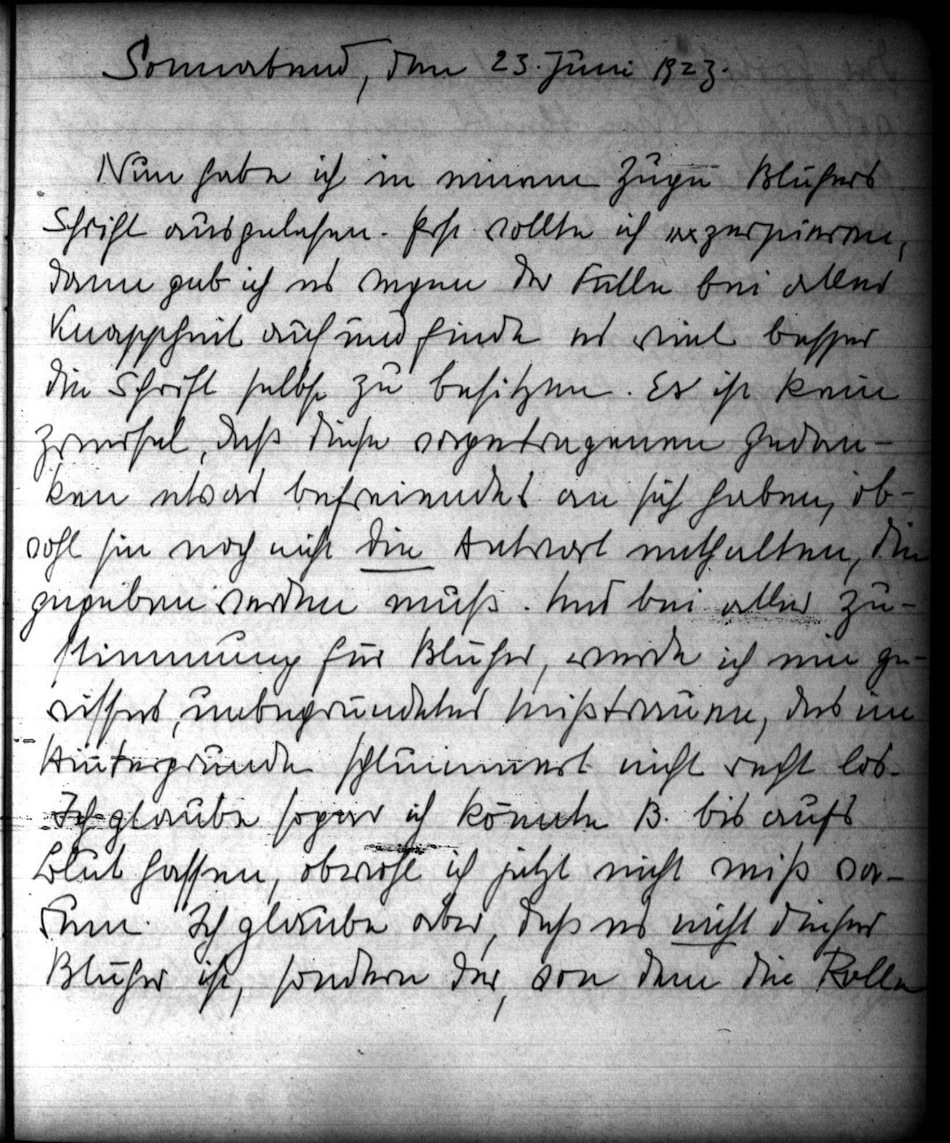 Sonnabend, den 23. Juni 1923.
Nun habe ich in einem Zuge Blühers
Schrift ausgelesen. Erst wollte ich exzerpieren,
dann gab ich es wegen der Fülle bei aller
Knappheit auf und finde es viel besser
die Schrift selbst zu besitzen. Es ist kein
Zweifel, daß diese vorgetragenen Gedan-
ken etwas befreiendes an sich haben, ob-
wohl sie noch nicht die Antwort enthalten, die
gegeben werden muß. Und bei aller Zu-
stimmung für Blüher, werde ich ein ge-
wisses, unbegründetes Mißtrauen, das im
Hintergrunde schlummert nicht recht los.
Ich glaube sogar ich könnte B. bis aufs
Blut hassen, obwohl ich jetzt nicht weiß wa-
rum. Ich glaube aber, daß es nicht dieser
Blüher ist, sondern der, von dem die Rolle